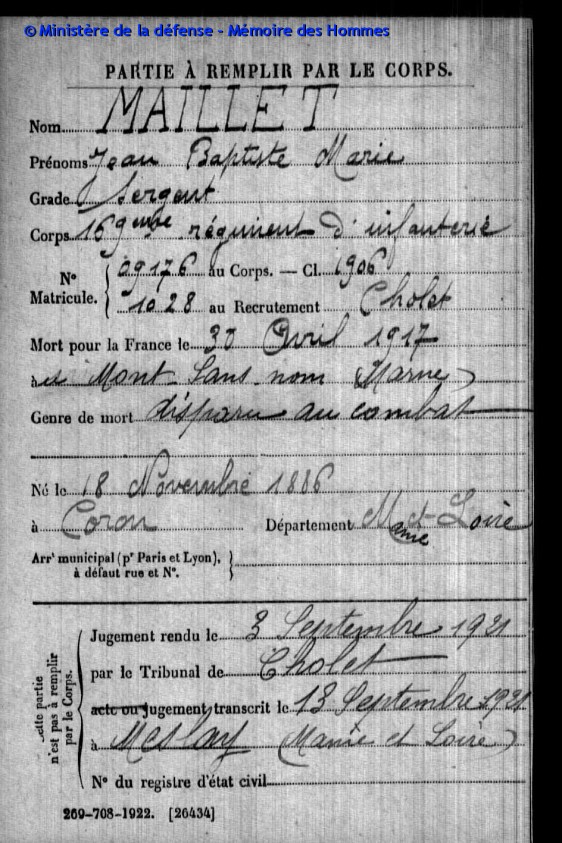 © Ministère de la défense - Mémoire des Hommes
PARTIE À REMPLIR PAR LE CORPS.
Nom MAILLET
Prénoms Jean Baptiste Marie
Grade Sergent
Corps 169eme régiment d'infanterie
N° Matricule. { 09176 au Corps. — Cl. 1906
1028 au Recrutement Cholet
Mort pour la France le 30 Avril 1917
à Mont Sans nom (Marne)
Genre de mort disparu au combat
Né le 18 Novembre 1886
à Coron Département Maine et Loire
Arrt municipal (pr Paris et Lyon), à défaut rue et N°. }
Cette partie n'est pas à remplir par le Corps.
Jugement rendu le 3 Septembre 1921
par le Tribunal de Cholet
acte ou jugement transcrit le 13 Septembre 1921
à Meslay (Maine et Loire)
N° du registre d'état civil
269-708-1922. [26434]